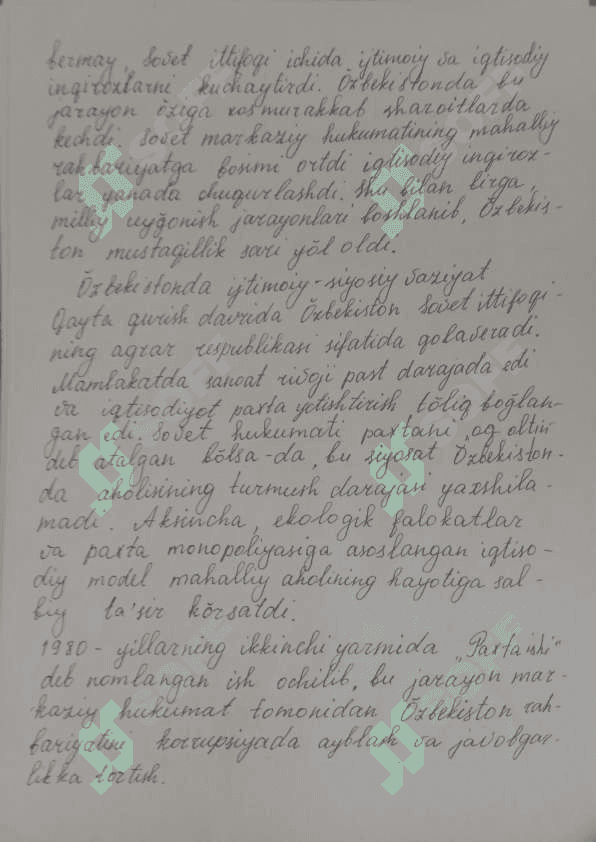 bermay, Sovet ittifoqi ichida ijtimoiy va iqtisodiy
inqirozlarni kuchaytirdi. Õzbekistonda bu
jarayon õziga xos murakkab sharoitlarda
kechdi. Sovet markaziy hukumatining mahalliy
rahbariyatga bosimi ortdi iqtisodiy inqiroz-
lar yanada chuqurlashdi. Shu bilan birga,
milliy uyg̃onish jarayonlari boshlanib, Õzbekis-
ton mustaqillik sari yõl oldi.
Õzbekistonda ijtimoiy-siyosiy vaziyat
Qayta qurish davrida Õzbekiston Sovet ittifoqi-
ning agrar respublikasi sifatida qolaveradi.
Mamlakatda sanoat rivoji past darajada edi
va iqtisodiyot paxta yetishtirish tõliq bog̃lan-
gan edi. Sovet hukumati paxtani „oq oltin
deb atalgan bõlsa-da, bu siyosat Õzbekiston-
da aholisining turmush darajasi yaxshila-
madi. Aksincha, ekologik falokatlar
va paxta monopoliyasiga asoslangan iqtiso-
diy model mahalliy aholining hayotiga sal-
biy ta'sir kõrsatdi.
1980-yillarning ikkinchi yarmida „Paxta ishi"
deb nomlangan ish ochilib, bu jarayon mar-
kaziy hukumat tomonidan Õzbekiston rah-
bariyatini korrupsiyada ayblash va javobgar-
likka tortish.